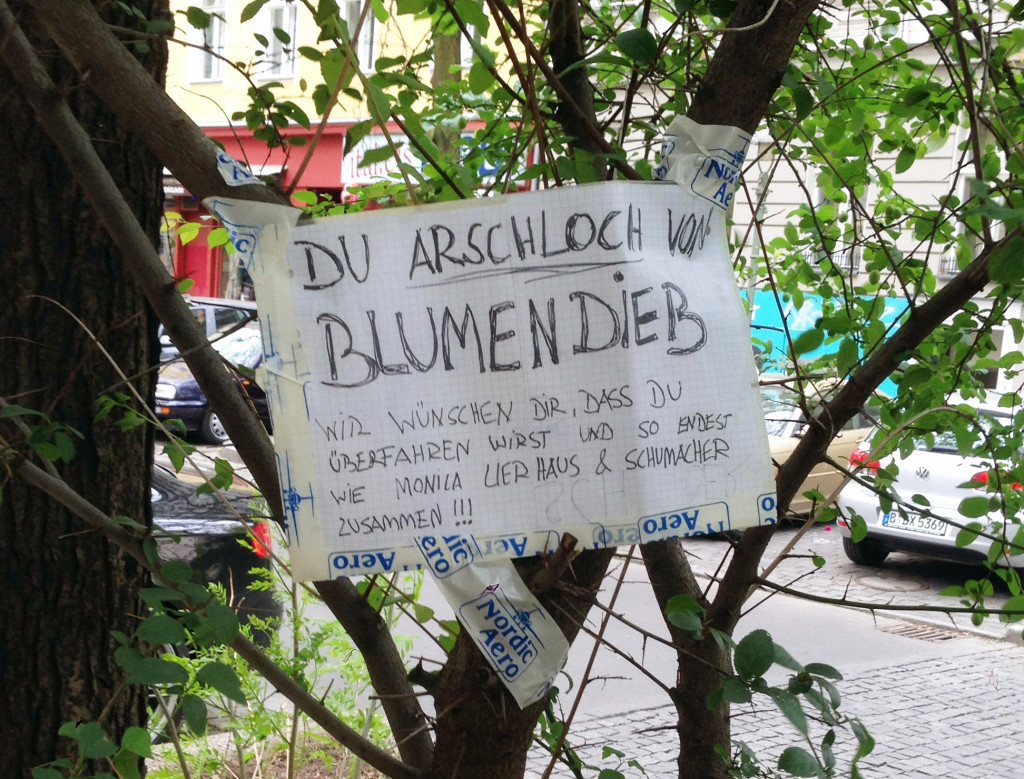 DU ARSCHLOCH VON
BLUMENDIEB
WIR WÜNSCHEN DIR, DASS DU
ÜBERFAHREN WIRST UND SO ENDEST
WIE MONICA LIERHAUS & SCHUMACHER
ZUSAMMEN !!!
Aero
Aero
Aero
Nordic
Aero
B DX 5369